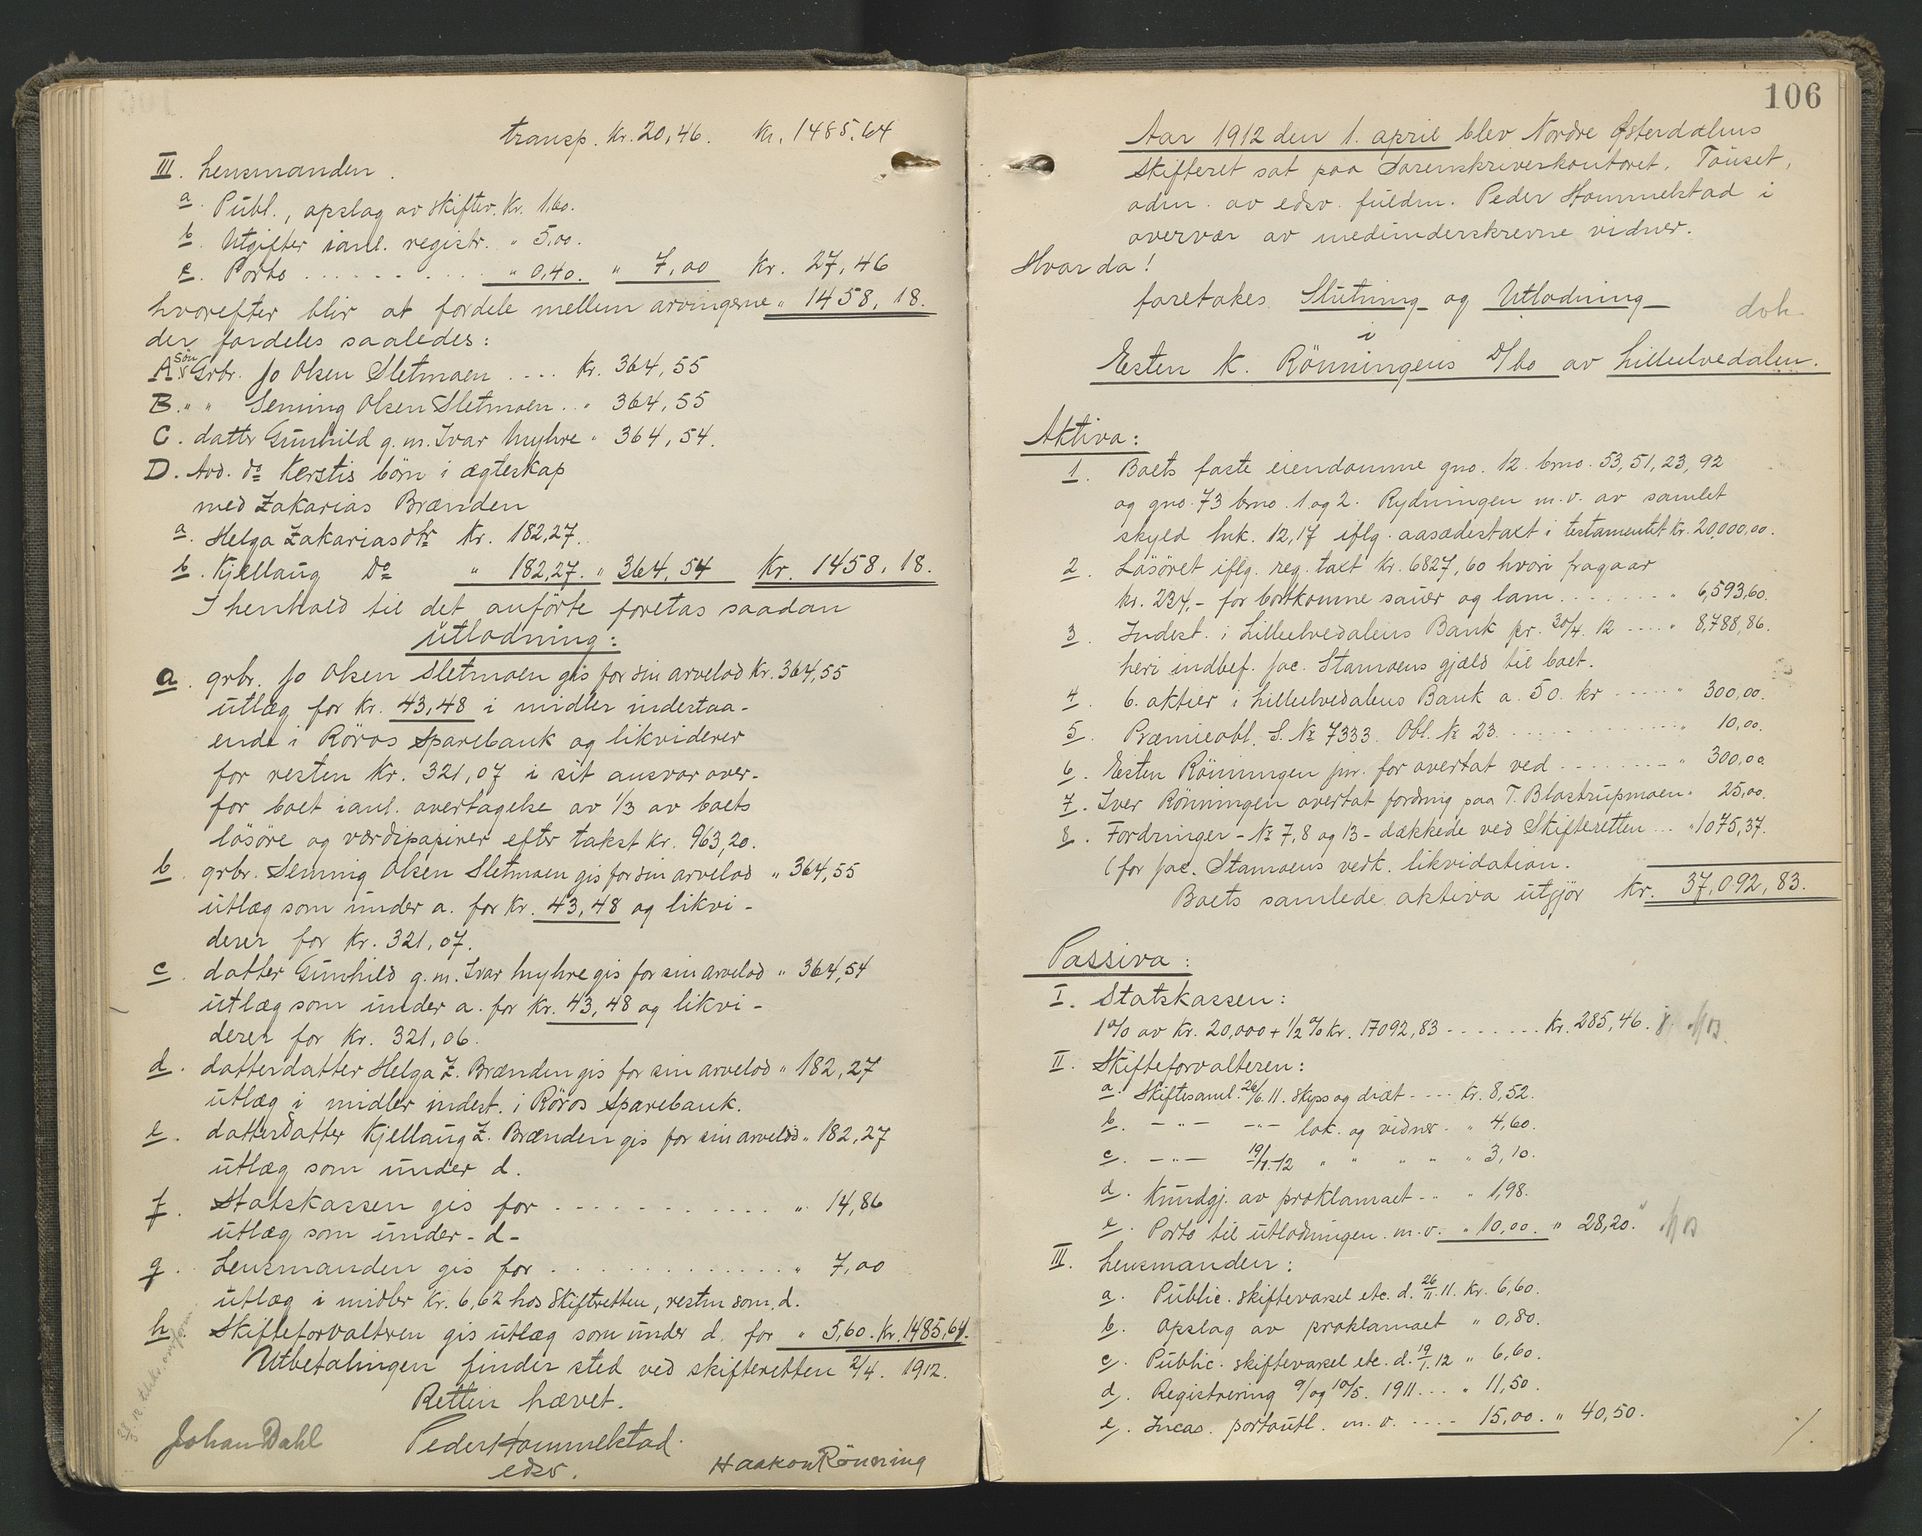 transp. Kr. 20,46. Kr. 1485,64
III. Lensmanden.
a. Publ., opslag av skifter. Kr. 1,60.
b. Utgifter ianl. registr. " 5,00.
c. Porto . . . . . . . . " 0,40. " 7,00 Kr. 27,46
hvorefter blir at fordele mellem arvingerne " 1458,18.
der fordeles saaledes:
A. Søn Grbr. Jo Olsen Sletmoen .... Kr. 364,55
B. " " Seming Olsen Sletmoen .. " 364,55
C. datter Gunhild g.m. Ivar Myhre " 364,54.
D. Avd. do Kerstis börn i ægteskap
med Zakarias Brænden
a. Helga Zakariasdtr Kr. 182,27.
b. Kjellaug Do " 182,27. " 364,54 Kr. 1458,18.
I henhold til det anförte foretas saadan
utlodning:
a. grbr. Jo Olsen Sletmoen gis for sin arvelod Kr. 364,55
utlæg for Kr. 43,48 i midler indestaa-
ende i Röros Sparebank og likviderer
for resten Kr. 321,07 i sit ansvar over-
for boet ianl. overtagelse av 1/3 av boets
lösöre og værdipapirer efter takst kr. 963,20.
b. grbr. Seming Olsen Sletmoen gis for sin arvelod " 364,55
utlæg som under a. for Kr. 43,48 og likvi-
derer for Kr. 321,07.
c. datter Gunhild g.m. Ivar Myhre gis for sin arvelod " 364,54
utlæg som under a. for Kr. 43,48 og likvi-
derer for Kr. 321,06.
d. datterdatter Helga Z. Brænden gis for sin arvelod " 182,27
utlæg i midler indest. i Röros Sparebank.
e. datterdatter Kjellaug Z. Brænden gis for sin arvelod " 182,27
utlæg som under d.
f. Statskassen gis for . . . . . . . . . . . " 14,86
utlæg som under - d -
g. Lensmanden gis for . . . . . . . . . . . " 7,00
utlæg i midler kr. 6,62 hos Skiftretten, resten som d.
h. Skifteforvalteren gis utlæg som under d. for " 5,60. Kr. 1485,64.
Utbetalingen finder sted ved skifteretten 2/4. 1912.
Retten hævet.
Johan Dahl Peder Hommelstad. Haakon Rönning
edsv.
106
Aar 1912 den 1. april blev Nordre Østerdalens
Skifteret sat paa Sorenskriverkontoret, Tönset,
adm. av edsv. fuldm. Peder Hommelstad i
overvær av medunderskrevne vidner.
Hvor da!
foretokes Slutning og Utlodning
i
Esten K. Rönningens D/bo av Lilleelvedalen.
Aktiva:
1. Boets faste eiendomme gno. 12. brno. 53, 51, 23, 92
og gno. 73 brno. 1 og 2. Rydningen m.v. av samlet
skyld mk. 12,17 iflg. aasædestaxt i testamentet Kr. 20,000,00.
2. Lösöret iflg. reg. taxt Kr. 6827,60 hvori fragaar
Kr. 234,- for bortkomne sauer og lam . . . . . . . " 6,593,60.
3. Indest. i Lilleelvedalens Bank pr. 30/4. 12 .... " 8,788,86.
heri indbef. Jac. Stamoens gjæld til boet.
4. 6. aktier i Lilleelvedalens Bank a. 50. kr ..... " 300,00.
5. Præmieobl. S. No 7333. Obl. No 23. . . . . . . . " 10,00.
6. Esten Rönningen jnr. for overtat ved . . . . . . " 300,00
7. Iver Rönningen overtat fordring paa T. Blostrupmoen " 25,00.
8. Fordringer - No 7, 8 og 13 - dækkede ved Skifteretten ... " 1075,37.
(for Jac. Stamoens vedk. likvidation.
Boets samlede aktiva utgjör Kr. 37,092,83.
Passiva:
I. Statskassen:
1% av Kr. 20,000 + 1/2 % Kr. 17092,83 ........ Kr. 285,46.
II. Skifteforvalteren:
a. Skiftesaml. 26/6. 11. skyss og diæt .... Kr. 8,52.
b. - " - - " - lok. og vidner. " 4,60.
c. - " - 19/1. 12 " " " " " 3,10.
d. Kundgj. av proklamaet .. " 1,98.
e. Porto til utlodningen m.v. " 10,00. " 28,20.
III. Lensmanden:
a. Public. skiftevarsel etc. d. 26/11. 11. Kr. 6,60.
b. Opslag av proklamaet " 0,80.
c. Public. skiftevarsel etc. d. 19/1. 12 " 6,60.
d. Registrering 9/ og 10/5. 1911 ... " 11,50.
e. Incas. portoutl. m.v. .... " 15,00. " 40,50.